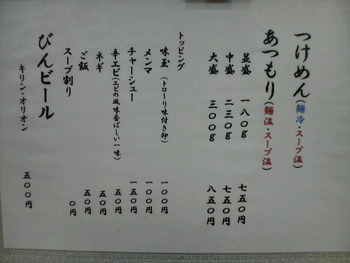 つけめん(麺冷・スープ温)
あつもり(麺温・スープ温)
並盛 一八〇g 七五〇円
中盛 二三〇g 七五〇円
大盛 三〇〇g 八五〇円
トッピング
味玉(トロ〜リ味付き卵) 一〇〇円
メンマ 一〇〇円
チャーシュー 一五〇円
辛エビ(エビの風味香ばしい一味) 五〇円
ネギ 五〇円
ご飯 五〇円
スープ割り 〇円
びんビール
キリン・オリオン 五〇〇円